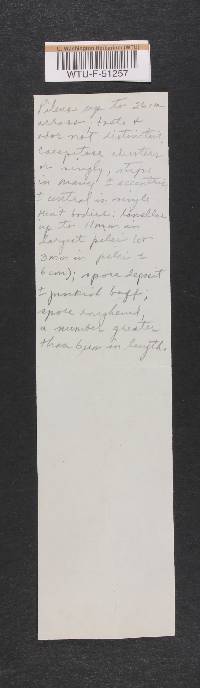 U. Washington Herbarium (WTU)
WTU-F-51257
Pileus up to 26 cm
across. taste &
odor not distinctive,
Caespitose clusters
or singly, stipe
in many ± eccentric
± central in single
fruit bodies. lamellae
up to 11 mm on
largest pilei (or
3mm in pilei ±
6 cm); spore deposit
± pinkish buff,
spore roughened,
a number greater
than 6µm in length.